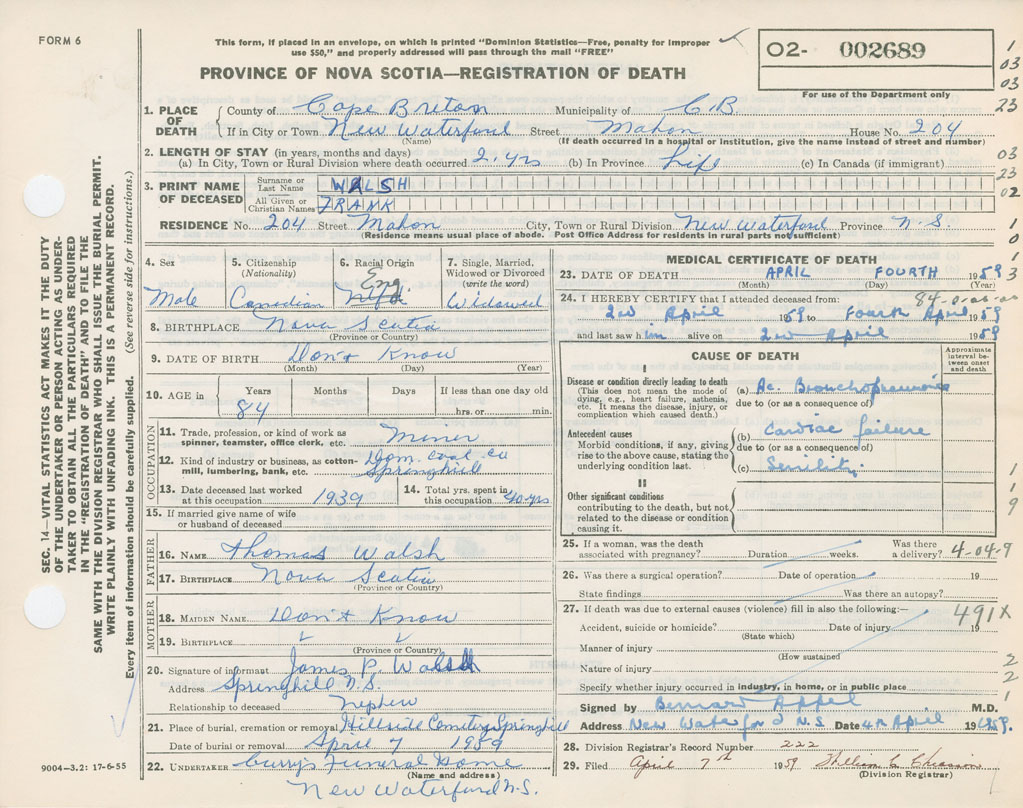 FORM 6
This form, if placed in an envelope, on which is printed "Dominion Statistics—Free, penalty for improper
use $50," and properly addressed will pass through the mail "FREE"
PROVINCE OF NOVA SCOTIA—REGISTRATION OF DEATH
02- 002689
For use of the Department only
1 03 03 23
03 23 02
1 0 1 3
1. PLACE OF DEATH
County of Cape Breton Municipality of C.B.
If in City or Town New Waterford Street Mahon House No. 204
(Name) (If death occurred in a hospital or institution, give the name instead of street and number)
2. LENGTH OF STAY (in years, months and days)
(a) In City, Town or Rural Division where death occurred 2. yrs (b) In Province Life (c) In Canada (if immigrant)
3. PRINT NAME OF DECEASED
Surname or Last Name WALSH
All Given or Christian Names FRANK
RESIDENCE No. 204 Street Mahon City, Town or Rural Division New Waterford Province N.S.
(Residence means usual place of abode. Post Office Address for residents in rural parts not sufficient)
4. Sex
Male
5. Citizenship (Nationality)
Canadian
6. Racial Origin
Eng
Nfld
7. Single, Married, Widowed or Divorced (write the word)
Widowed
8. BIRTHPLACE Nova Scotia
(Province or Country)
9. DATE OF BIRTH Don't Know
(Month) (Day) (Year)
10. AGE in
Years Months Days If less than one day old
84 hrs. or min.
OCCUPATION
11. Trade, profession, or kind of work as
spinner, teamster, office clerk, etc. Miner
12. Kind of industry or business, as cotton-
mill, lumbering, bank, etc. Dom. Coal. Co
Springhill
13. Date deceased last worked
at this occupation 1939
14. Total yrs. spent in
this occupation 40 yrs
15. If married give name of wife
or husband of deceased
FATHER
16. NAME Thomas Walsh
17. BIRTHPLACE Nova Scotia
(Province or Country)
MOTHER
18. MAIDEN NAME Don't Know
19. BIRTHPLACE
(Province or Country)
20. Signature of informant James P. Walsh
Address Springhill N.S.
Relationship to deceased Nephew
21. Place of burial, cremation or removal Hillside Cemetery Springhill
Date of burial or removal April 7 1959
22. UNDERTAKER Curry's Funeral Home
(Name and address)
New Waterford N.S.
9004—3.2: 17-6-55
MEDICAL CERTIFICATE OF DEATH
23. DATE OF DEATH APRIL FOURTH 1959
(Month) (Day) (Year)
24. I HEREBY CERTIFY that I attended deceased from: 84-0-00-00
2nd April 1959 to Fourth April 1959
and last saw him alive on 2nd April 1959
CAUSE OF DEATH
Approximate interval between onset and death
I
Disease or condition directly leading to death
(This does not mean the mode of
dying, e.g., heart failure, asthenia,
etc. It means the disease, injury, or
complication which caused death.)
(a) Ac. Bronchopneumonia
due to (or as a consequence of)
Antecedent causes
Morbid conditions, if any, giving
rise to the above cause, stating the
underlying condition last.
(b) Cardiac failure
due to (or as a consequence of)
(c) Senility
II
Other significant conditions
contributing to the death, but not
related to the disease or condition
causing it.
1
1
9
25. If a woman, was the death Was there
associated with pregnancy? Duration weeks. a delivery? 4-04-9
26. Was there a surgical operation? Date of operation 19
State findings Was there an autopsy?
27. If death was due to external causes (violence) fill in also the following:— 491X
Accident, suicide or homicide? Date of injury 19
(State which)
Manner of injury
(How sustained
Nature of injury
2
2
1
Specify whether injury occurred in industry, in home, or in public place
Signed by Bernard Appel M.D.
Address New Waterford N.S Date 4th April 1959.
28. Division Registrar's Record Number 222
29. Filed April 7th 1959
(Division Registrar)
SEC. 14—VITAL STATISTICS ACT MAKES IT THE DUTY
OF THE UNDERTAKER OR PERSON ACTING AS UNDER-
TAKER TO OBTAIN ALL THE PARTICULARS REQUIRED
IN THE "REGISTRATION OF DEATH" AND TO FILE THE
SAME WITH THE DIVISION REGISTRAR WHO SHALL ISSUE THE BURIAL PERMIT.
WRITE PLAINLY WITH UNFADING INK. THIS IS A PERMANENT RECORD.
Every item of information should be carefully supplied. (See reverse side for instructions.)